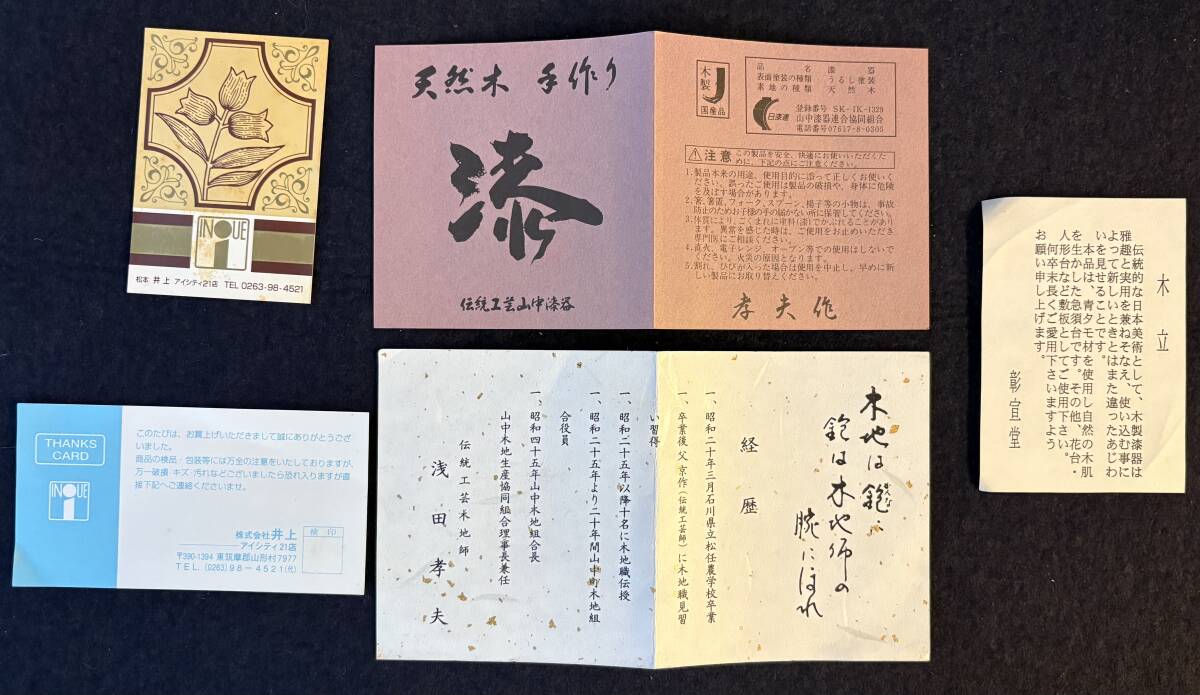 INOUE
松本 井上 アイシティ21店 TEL 0263-98-4521
天然木 手作り
漆
伝統工芸山中漆器
木製
国産品
品名 漆器
表面塗装の種類 うるし塗装
素地の種類 天然木
日漆連
登録番号 SK-IK-1329
山中漆器連合協同組合
電話番号07617-8-0305
注意 この製品を安全、快適にお使いいただくた
めに、下記の点にご注意ください。
1.製品本来の用途、使用目的に沿って正しくお使いく
ださい。誤ったご使用は製品の破損や、身体に危険
を及ぼす場合があります。
2.箸、箸置、フォーク、スプーン、楊子等の小物は、事故
防止のためお子様の手の届かない所に保管してください。
3.体質により、ごくまれに塗料(漆)でかぶれることがあり
ます。異常を感じた時は、ご使用をお止めいただき
専門医にご相談ください。
4.直火、電子レンジ、オーブン等での使用はしないで
ください。火災の原因となります。
5.割れ、ひびが入った場合は使用を中止し、早めに新
しい製品にお取り替えください。
孝夫作
木立
伝統的な日本美術として、木製漆器は
雅趣と実用を兼ねそなえ、使い込む事に
よって新しいときとはまた違ったあじわ
いを見せることです。
本品は、青タモ材を使用し自然の木肌
を生かした急須台です。その他、花台・
人形台など敷板としてご使用下さい。
何卒末長くご愛用下さいますよう
お願い申し上げます。
彰宣堂
THANKS
CARD
INOUE
このたびは、お買上げいただきまして誠にありがとうござ
いました。
商品の検品・包装等には万全の注意をいたしておりますが、
万一破損・キズ・汚れなどございましたら恐れ入りますが直
接下記へご連絡くださいませ。
株式会社 井上
アイシティ21店
〒390-1394 東筑摩郡山形村7977
TEL.(0263)98-4521(代)
検印
木地は鉋
かんな
鉋は木地師の
腕にほれ
経歴
一、昭和二十年三月石川県立松任農学校卒業
一、卒業後父京作(伝統工芸師)に木地職見習
い習得
一、昭和二十五年以降十名に木地職伝授
一、昭和二十五年より二十年間山中町木地組
合役員
一、昭和四十五年山中木地組合長
山中木地生産協同組合理事長兼任
伝統工芸木地師
浅田孝夫